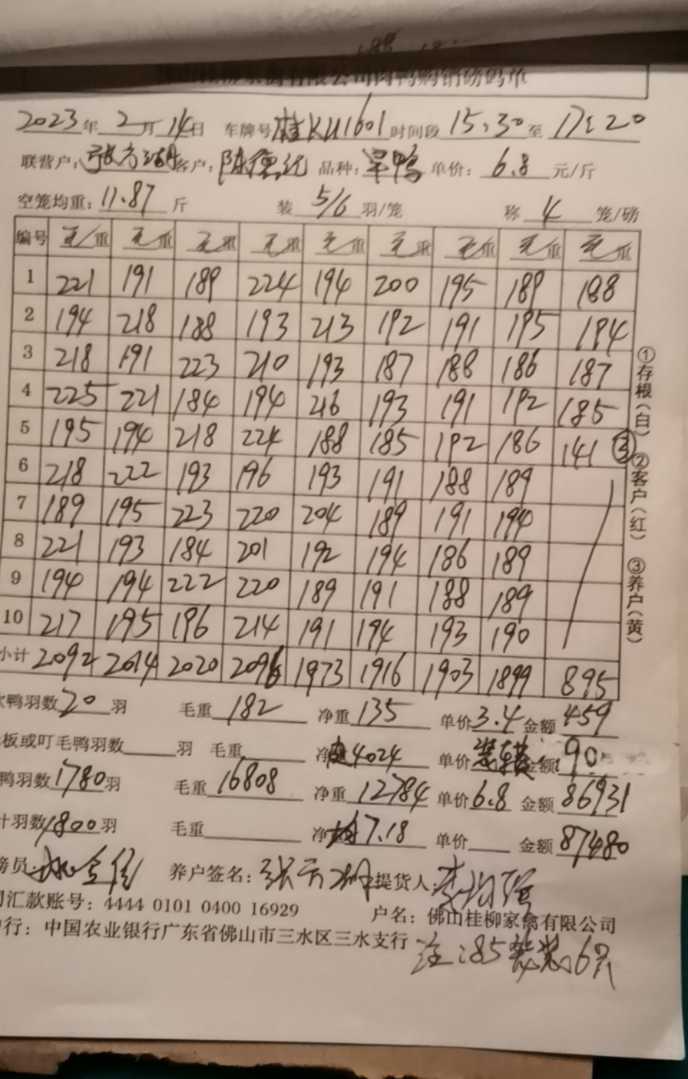 有限公司肉鸭购销磅码单
2023年 2月 14日 车牌号桂KU1601时间段 15:30至 17:20
联营户: 客户: 陈德 品种: 旱鸭 单价: 6.8 元/斤
空笼均重: 11.87 斤 装 5/6 羽/笼 称 4 笼/磅
编号 毛/重 毛重 毛重 毛重 毛重 毛重 毛重 毛重 毛重
1 221 191 189 224 194 200 195 189 188
2 194 218 188 193 213 192 191 195 194
3 218 191 223 210 193 187 188 186 187
4 225 221 184 194 216 193 191 192 185
5 195 194 218 224 188 185 192 186 141 ③
6 218 222 193 196 193 191 188 189
7 189 195 223 220 204 189 191 194
8 221 193 184 201 192 194 186 189
9 194 194 222 220 189 191 188 189
10 217 195 196 214 191 194 193 190
小计 2092 2014 2020 2096 1973 1916 1903 1899 895
①存根(白) ②客户(红) ③养户(黄)
鸭羽数 20 羽 毛重 182 净重 135 单价 3.4 金额 459
板或叮毛鸭羽数 羽 毛重 净 4024 单价 金额: 90
鸭羽数 1780 羽 毛重 16808 净重 12784 单价 6.8 金额 86931
计羽数 1800 羽 毛重 净 均7.18 单价 金额 87480
务员 养户签名: 张 提货人: 李
汇款账号: 4444 0101 0400 16929 户名: 佛山桂柳家禽有限公司
行: 中国农业银行广东省佛山市三水区三水支行
注:85 装6只